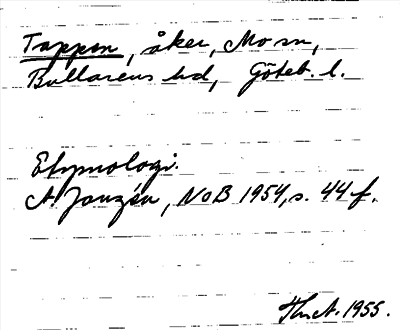 Tappen, åker, Mo sn,
Bullarens hd, Göteb. l.
Etymologi.
A. Janzén, NoB 1954, s. 44 f.
1955.